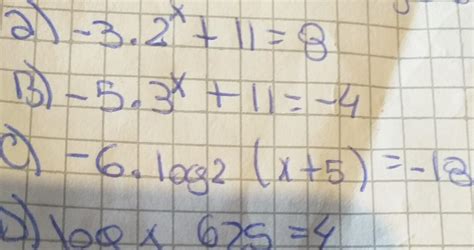 a) -3.2^x + 11 = 8
B) -5.3^x + 11 = -4
c) -6.log2 (x+5) = -18
D) log x 625 = 4